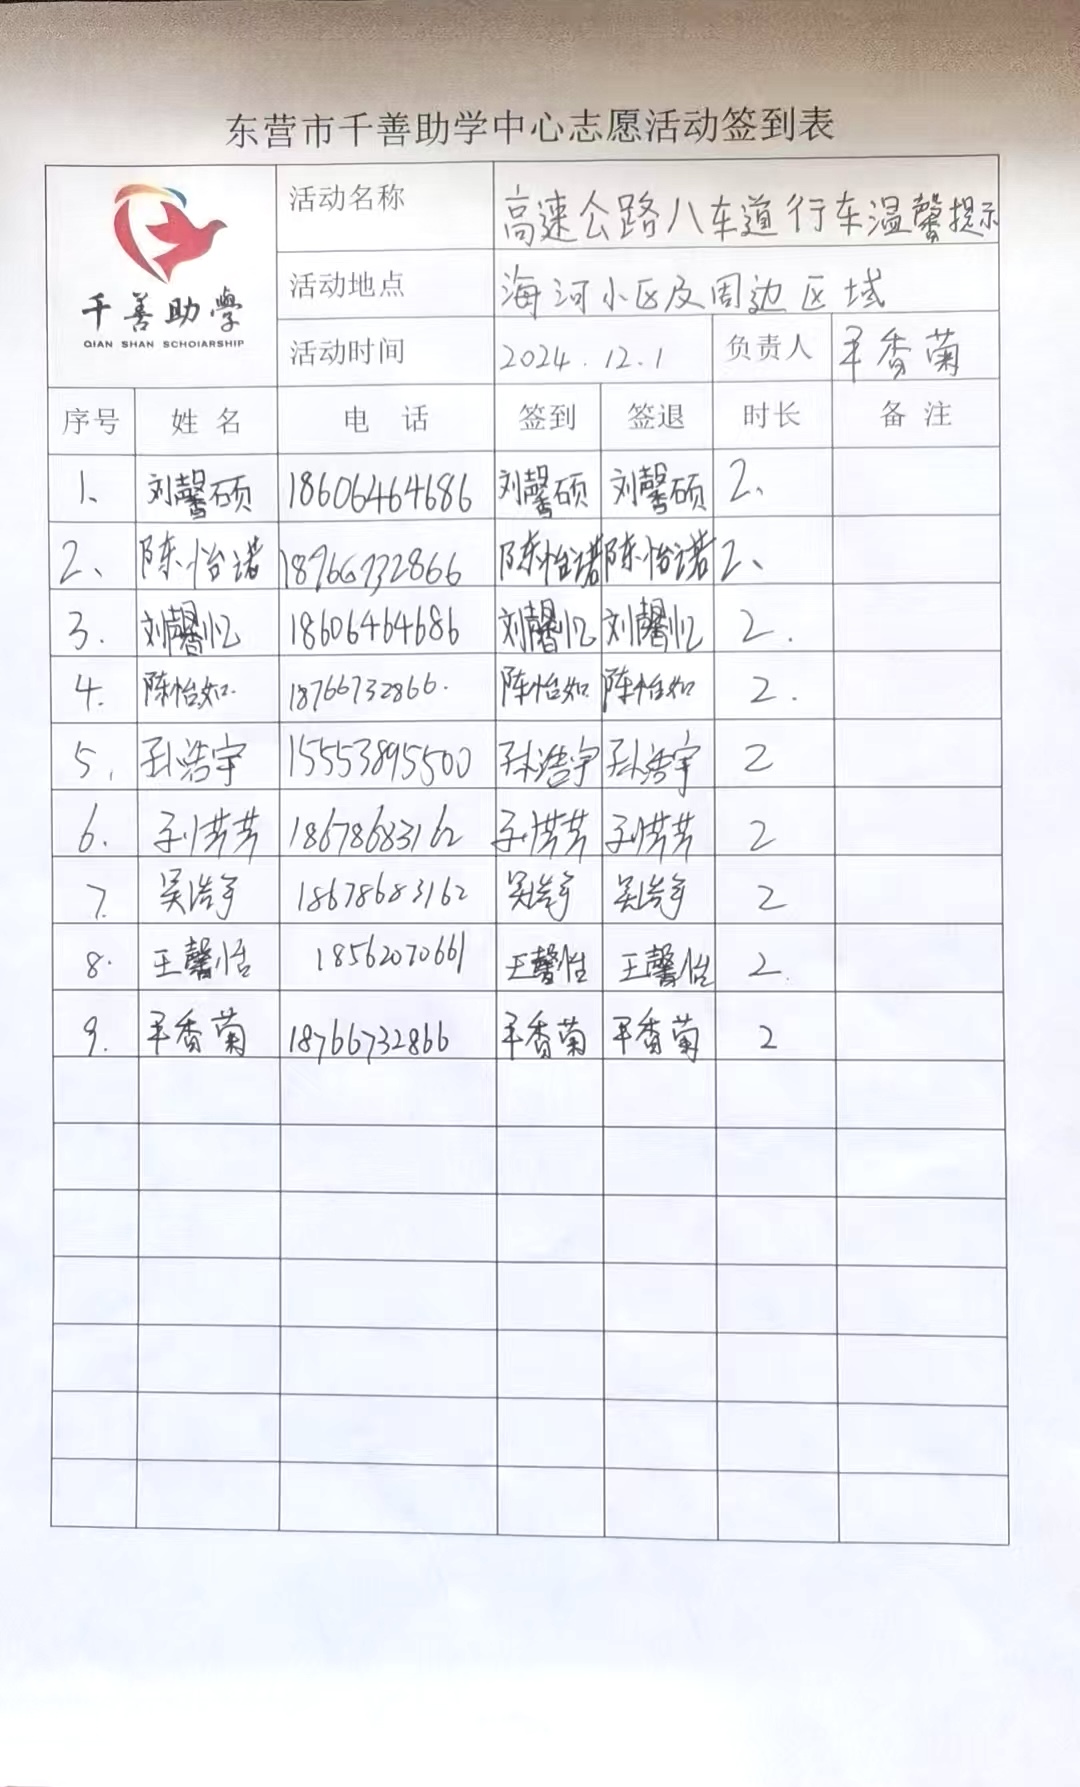 东营市千善助学中心志愿活动签到表
千善助學
QIAN SHAN SCHOIARSHIP
活动名称 高速公路八车道行车温馨提示
活动地点 海河小区及周边区域
活动时间 2024.12.1 负责人 平香菊
序号 姓名 电话 签到 签退 时长 备注
1、 刘馨硕 18606464686 刘馨硕 刘馨硕 2、
2、 陈怡诺 18766732866 陈怡诺 陈怡诺 2、
3. 刘馨忆 18606464686 刘馨忆 刘馨忆 2.
4. 陈怡如. 18766732866. 陈怡如 陈怡如 2.
5. 孙浩宇 15553895500 孙浩宇 孙浩宇 2
6. 孙芳芳 18678683162 孙芳芳 孙芳芳 2
7. 吴浩宇 18678683162 吴浩宇 吴浩宇 2
8. 王馨怡 18562070661 王馨怡 王馨怡 2.
9. 平香菊 18766732866 平香菊 平香菊 2